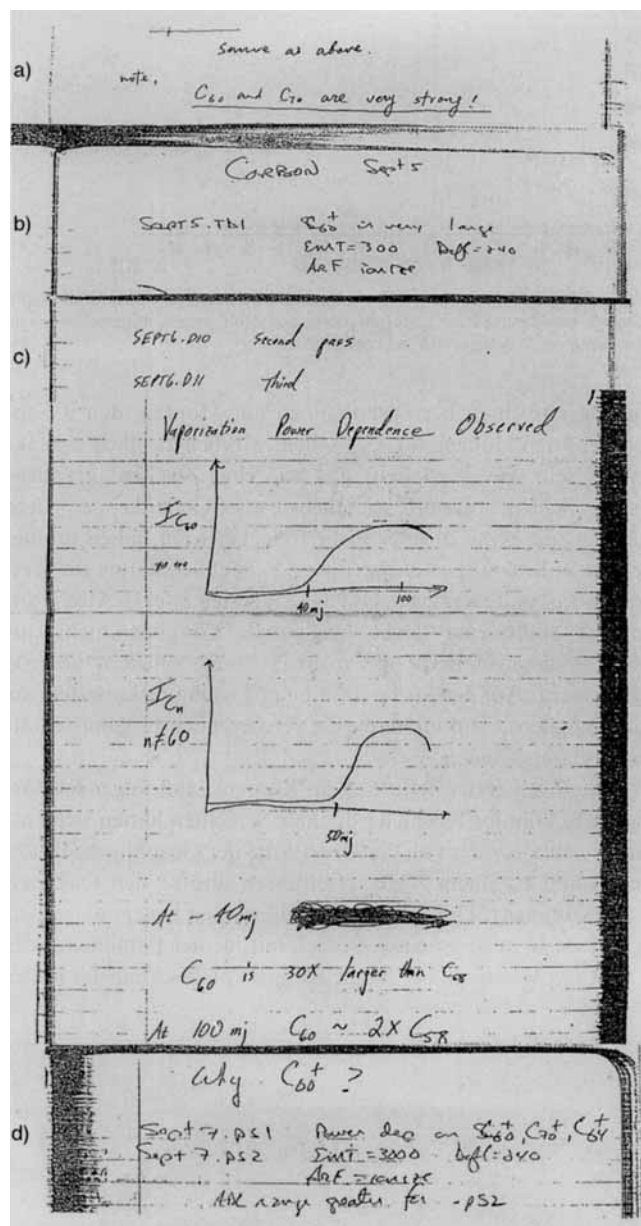 a)
same as above.
note,
C60 and C70 are very strong!
b)
CARBON Sept 5
SEPT5.TB1 C60+ is very large
EMT=300 Defl=240
ARF ionize
c)
SEPT6.D10 Second pass
SEPT6.D11 Third
Vaporization Power Dependence Observed
IC60
40mj 100
ICn
n≠60
50mj
At ~ 40mj
C60 is 30X larger than C58
At 100 mj C60 ~ 2X C58
Why C60+ ?
d)
Sept 7.PS1 Power dep on C60+, C70+, C64+
Sept 7.PS2 EMT=3000 Defl=240
ARF=ionize
ADC range greater for .PS2